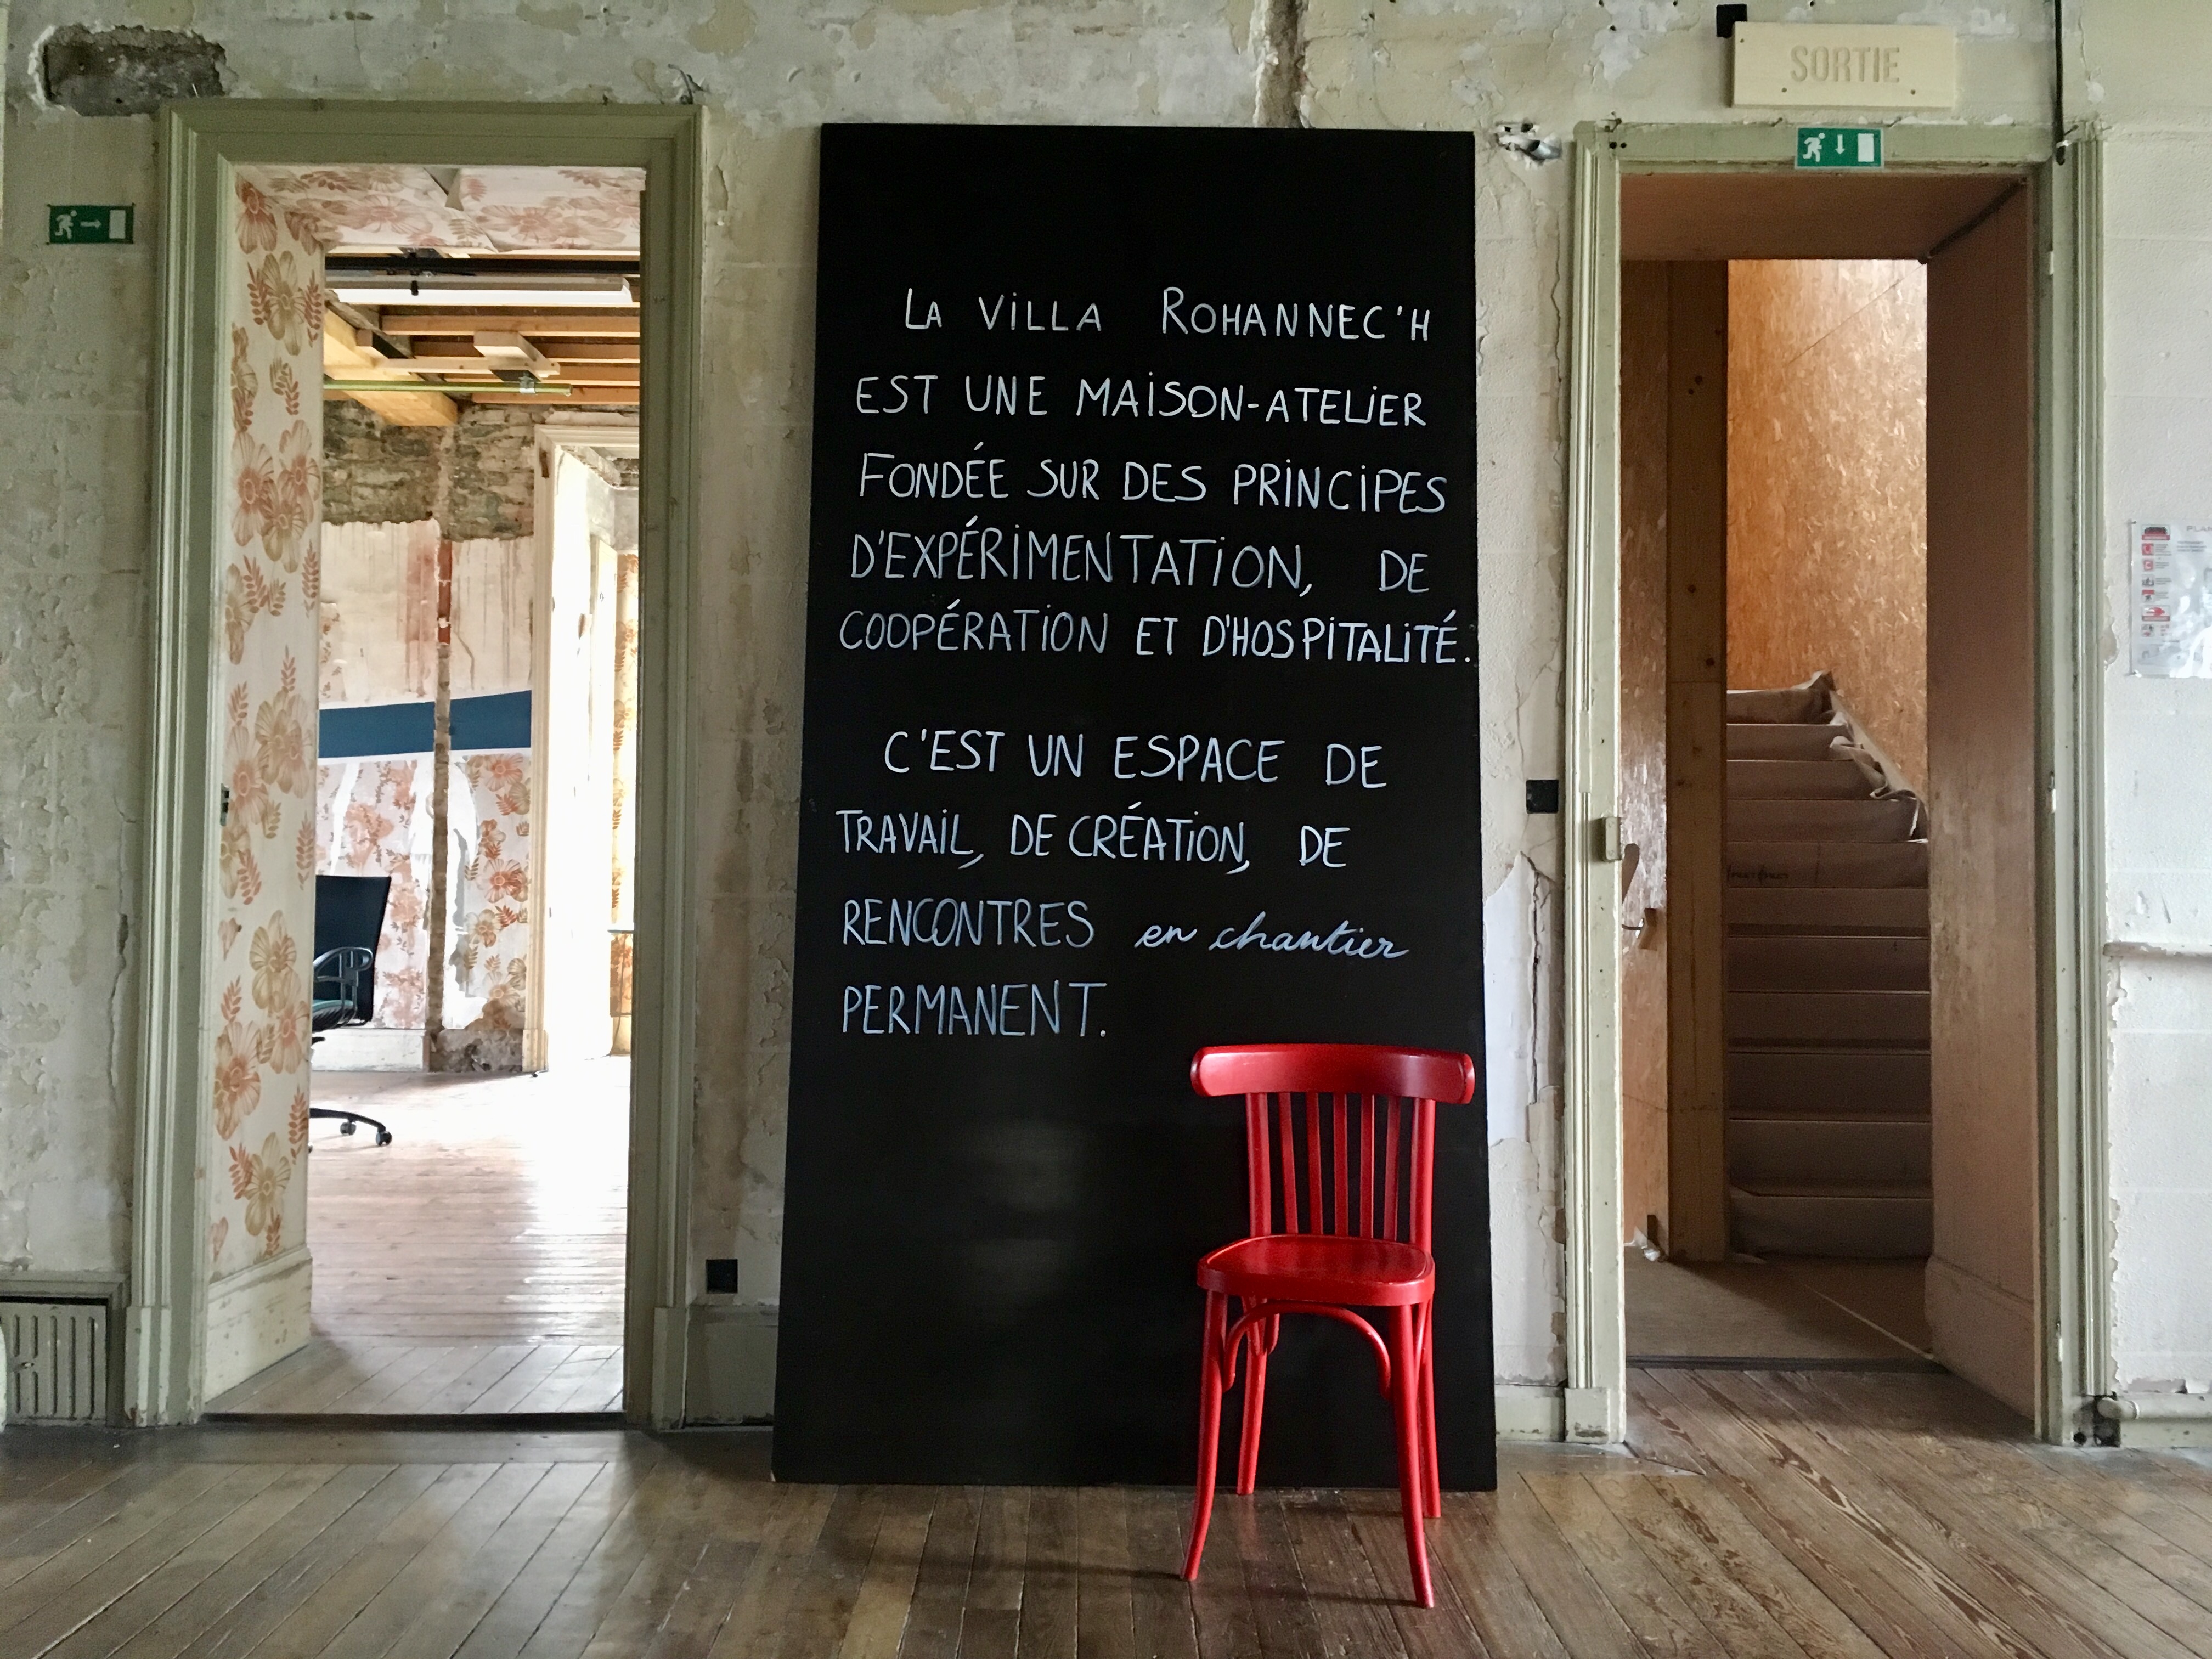 SORTIE
LA ViLLA ROHANNEC'H
EST UNE MAiSON-ATELiER
FONDÉE SUR DES PRiNCiPES
D'EXPÉRiMENTATiON, DE
COOPÉRATiON ET D'HOSPiTALiTÉ.
C'EST UN ESPACE DE
TRAVAiL, DE CRÉATiON, DE
RENCONTRES en chantier
PERMANENT.